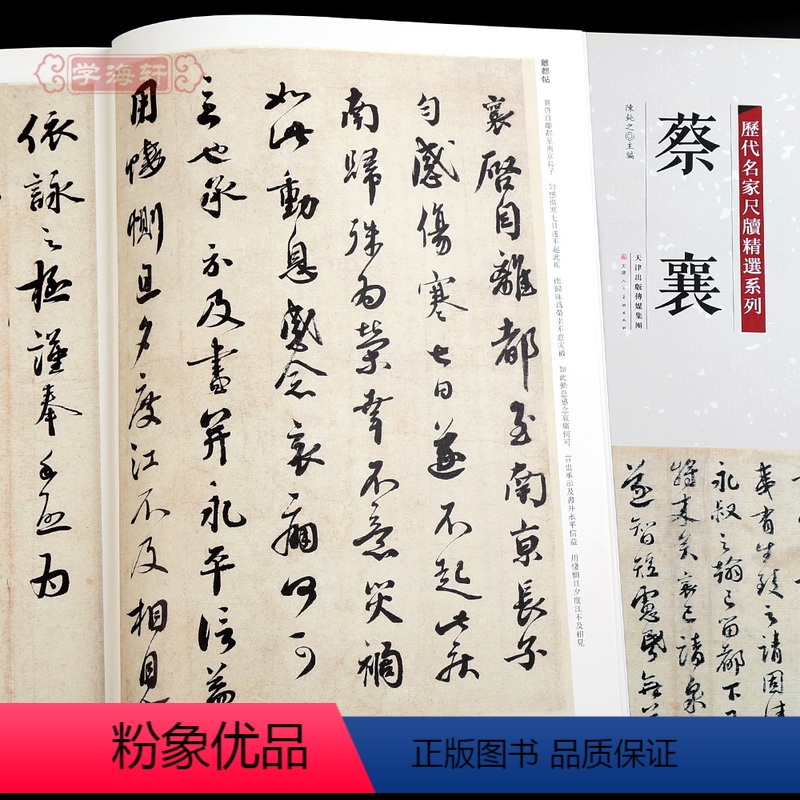 学海轩
離都帖
襄啓自離都至南京長子
匀感傷寒七日遂不起此疾
南歸殊爲榮幸不意災禍
如此動息感念哀痛何可
言也承示及書并永平信益
用悽惻旦夕度江不及相見
依詠之極謹奉手啟爲
襄啓自離都至南京長子 匀感傷寒七日遂不起此疾 南歸殊爲榮幸不意災禍 如此動息感念哀痛何可 言也承示及書并永平信益 用悽惻旦夕度江不及相見
歷代名家尺牘精選系列
蔡襄
陳鈍之◎主編
天津出版傳媒集團
天津人民美術出版社
永叔之翰已留都下
襄已請泉
遂智短慮昬無
粉象优品
正版图书 品质保证